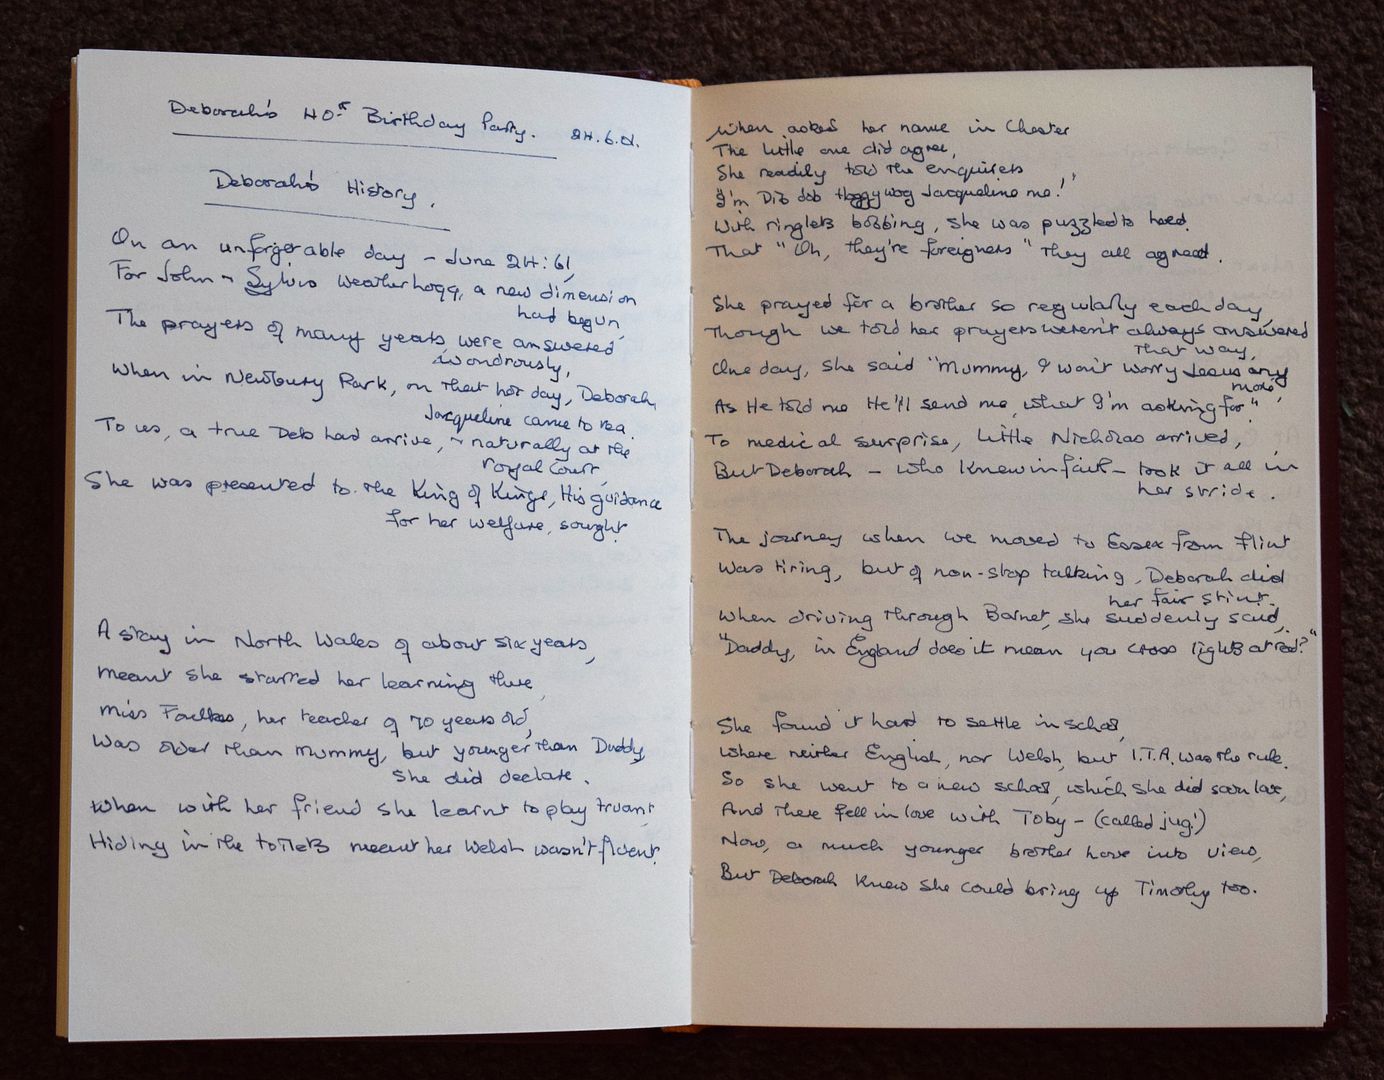 Deborah's 40th Birthday Party. 24.6.01.
Deborah's History.
On an unforgetable day – June 24:61,
For John & Sylvia Weatherhogg, a new dimension
had begun,
The prayers of many years were answered
wondrously,
When in Newbury Park, on that hot day, Deborah
Jacqueline came to tea.
To us, a true Deb had arrive, & naturally at the
royal Court,
She was presented to the King of Kings, His guidance
for her welfare, sought.
A stay in North Wales of about six years,
meant she started her learning there,
Miss Foulkes, her teacher of 70 years old,
Was older than mummy, but younger than Daddy,
she did declare.
When with her friend she learnt to play truant,
Hiding in the toilets meant her Welsh wasn't fluent.
When asked her name in Chester
The little one did agree,
She readily told the enquirers
"I'm Dib dob Hoggywog Jacqueline me!"
With ringlets bobbing, she was puzzled to heed
That "Oh, they're foreigners" they all agreed.
She prayed for a brother so regularly each day,
Though we told her prayers weren't always answered
that way,
One day, she said "Mummy, I won't worry Jesus any
more,
As He told me He'll send me, what I'm asking for"
To medical surprise, little Nicholas arrived,
But Deborah – who knew in faith – took it all in
her stride.
The journey when we moved to Essex from Flint
Was tiring, but of non-stop talking, Deborah did
her fair stint.
When driving through Barnet, she suddenly said,
"Daddy, in England does it mean you cross lights at red?"
She found it hard to settle in school,
Where neither English, nor Welsh, but I.T.A. was the rule.
So she went to a new school, which she did soon love,
And there fell in love with Toby – (called jug!)
Now, a much younger brother hove into view,
But Deborah knew she could bring up Timothy too.